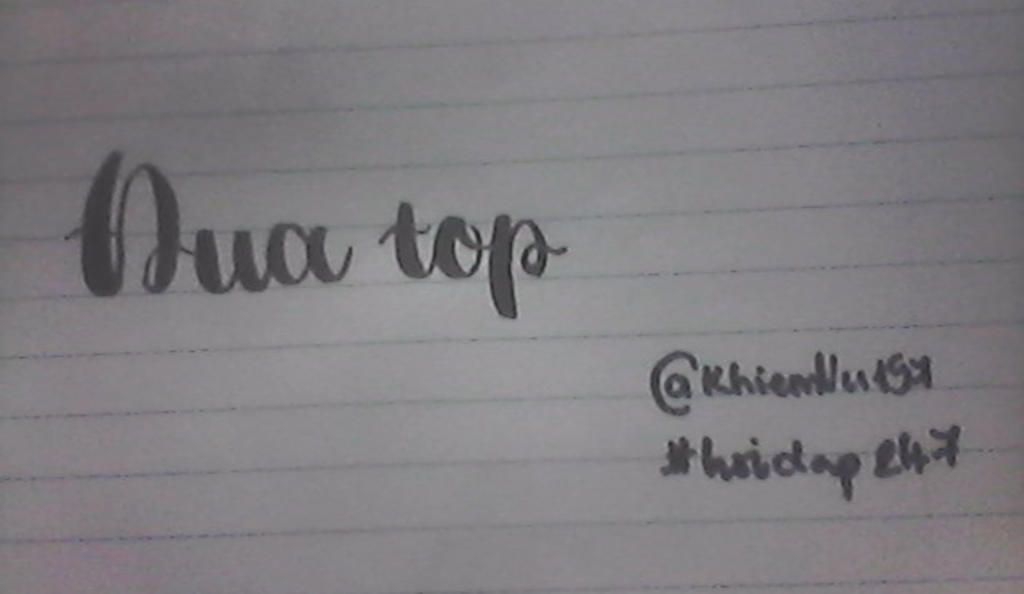 Dua top
@KhiemVu197
#hoidap247